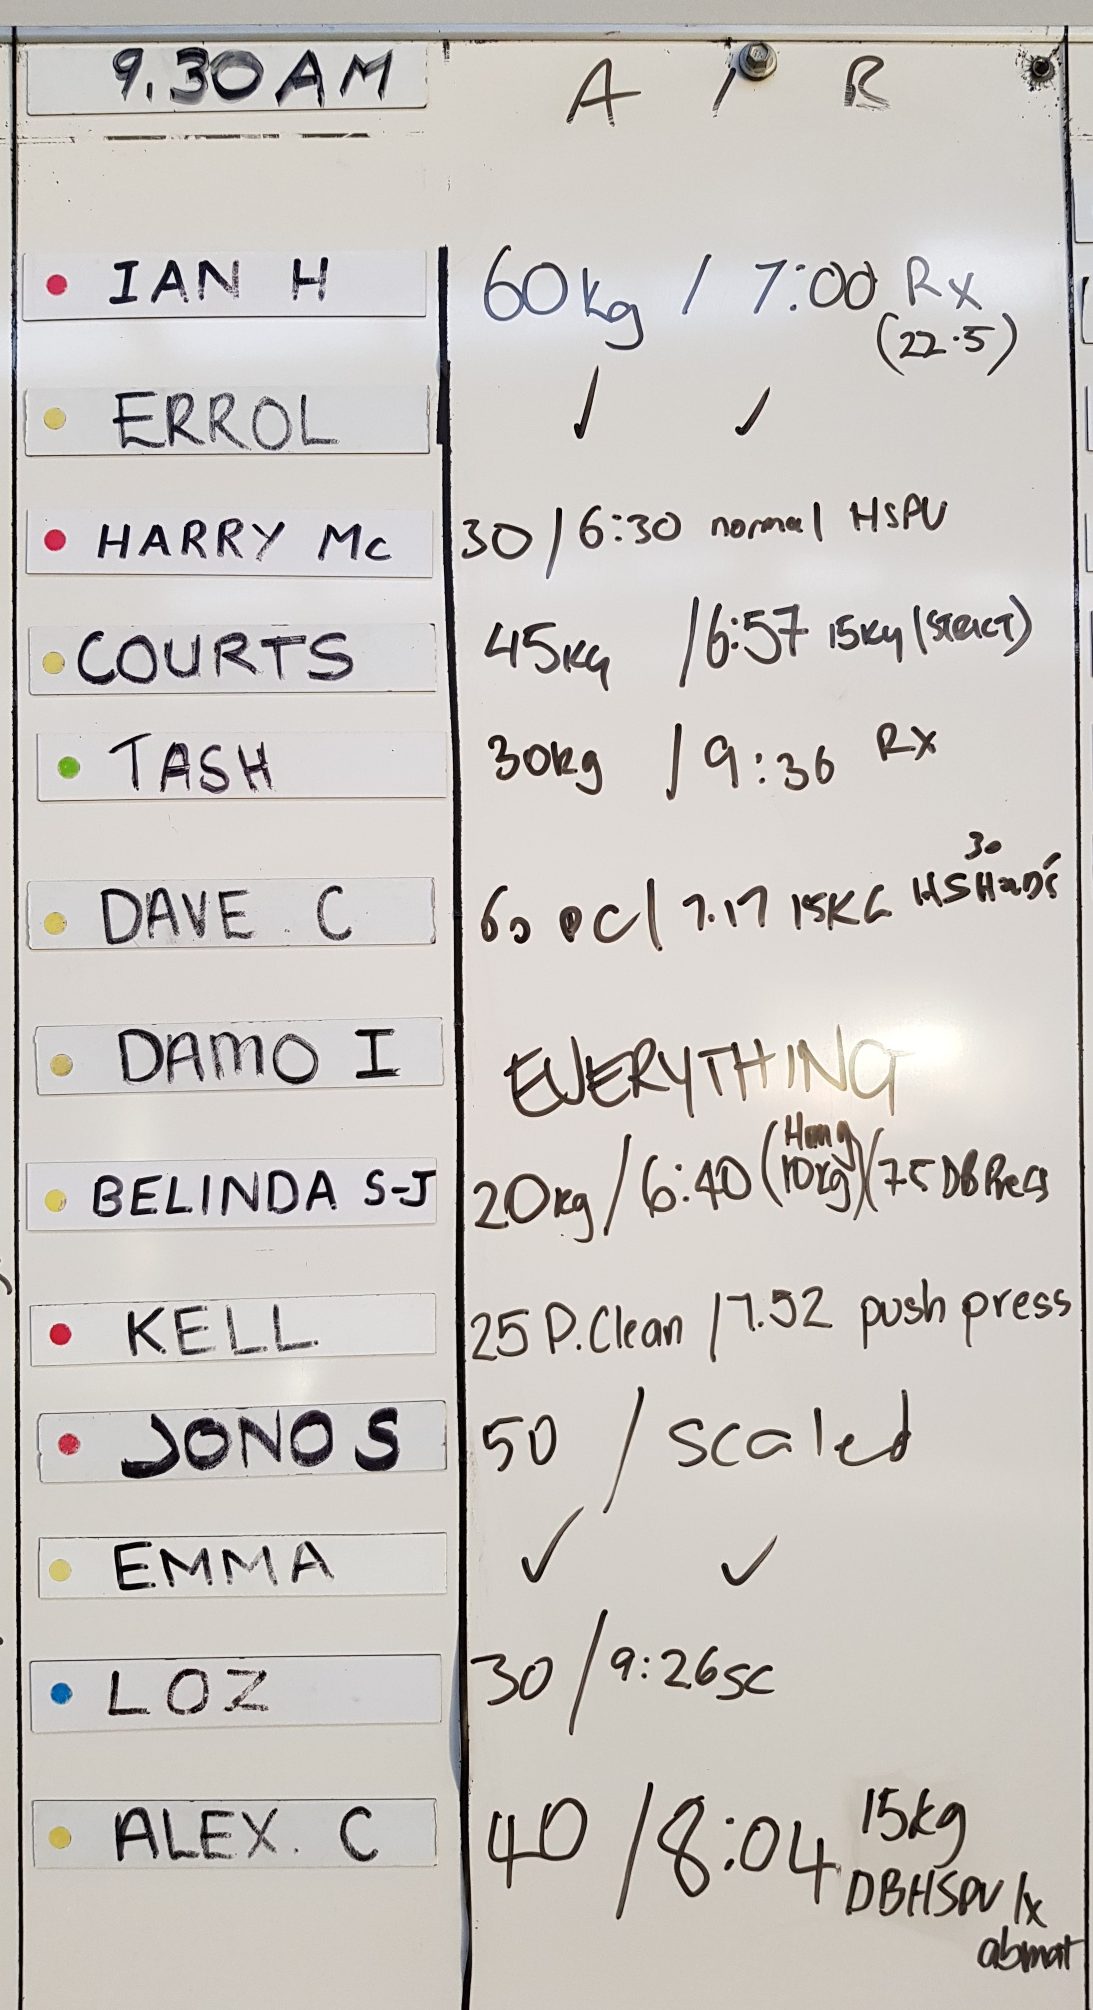 9.30AM A / R
IAN H 60kg / 7:00 Rx
(22.5)
ERROL ✓ ✓
HARRY Mc 30 / 6:30 normal HSPU
COURTS 45kg / 6:57 15kg (STRICT)
TASH 30kg / 9:36 RX
30
DAVE C 60 PC / 7.17 15KG
DAMO I EVERYTHING
Hang
BELINDA S-J 20kg / 6:40 (10kg) (7.5 DB Press
KELL 25 P.Clean / 7.52 push press
JONO S 50 / scaled
EMMA ✓ ✓
LOZ 30 / 9:26 sc
ALEX. C 40 / 8:04 15kg
DBHSPU 1x
abmat